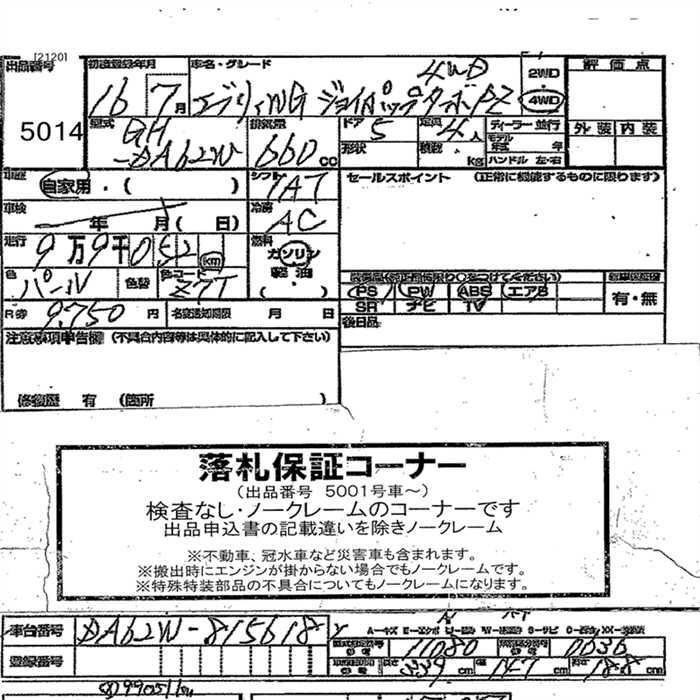 [2120]
出品番号 初度登録年月 車名・グレード 4WD 2WD 評価点
5014 16 7月 エブリィWG ジョイポップターボPZ 4WD
型式 排気量 ドア 5 定員 4人 ディーラー 並行 外装 内装
GH
-DA62W 660cc 形状 積数 kg モデル年式 年 ハンドル 左・右
車歴 自家用・( ) シフト IAT セールスポイント (正常に機能するものに限ります)
車検 年 月( 日) 冷房 AC
走行 9万9千052km 燃料 ガソリン
色 パール 色替 色コード Z7T 軽油 (・)
PS PW ABS エアB 有・無
SR ナビ TV
R券 9,750円 名変通知期限 月 日 後日品
注意事項申告欄 (不具合内容等は具体的に記入して下さい)
修復歴 有 (箇所 )
落札保証コーナー
(出品番号 5001号車~)
検査なし・ノークレームのコーナーです
出品申込書の記載違いを除きノークレーム
※不動車、冠水車など災害車も含まれます。
※搬出時にエンジンが掛からない場合でもノークレームです。
※特殊特装部品の不具合についてもノークレームになります。
車台番号 DA62W-815618
11080 0036
登録番号 339cm 幅 147cm 188cm